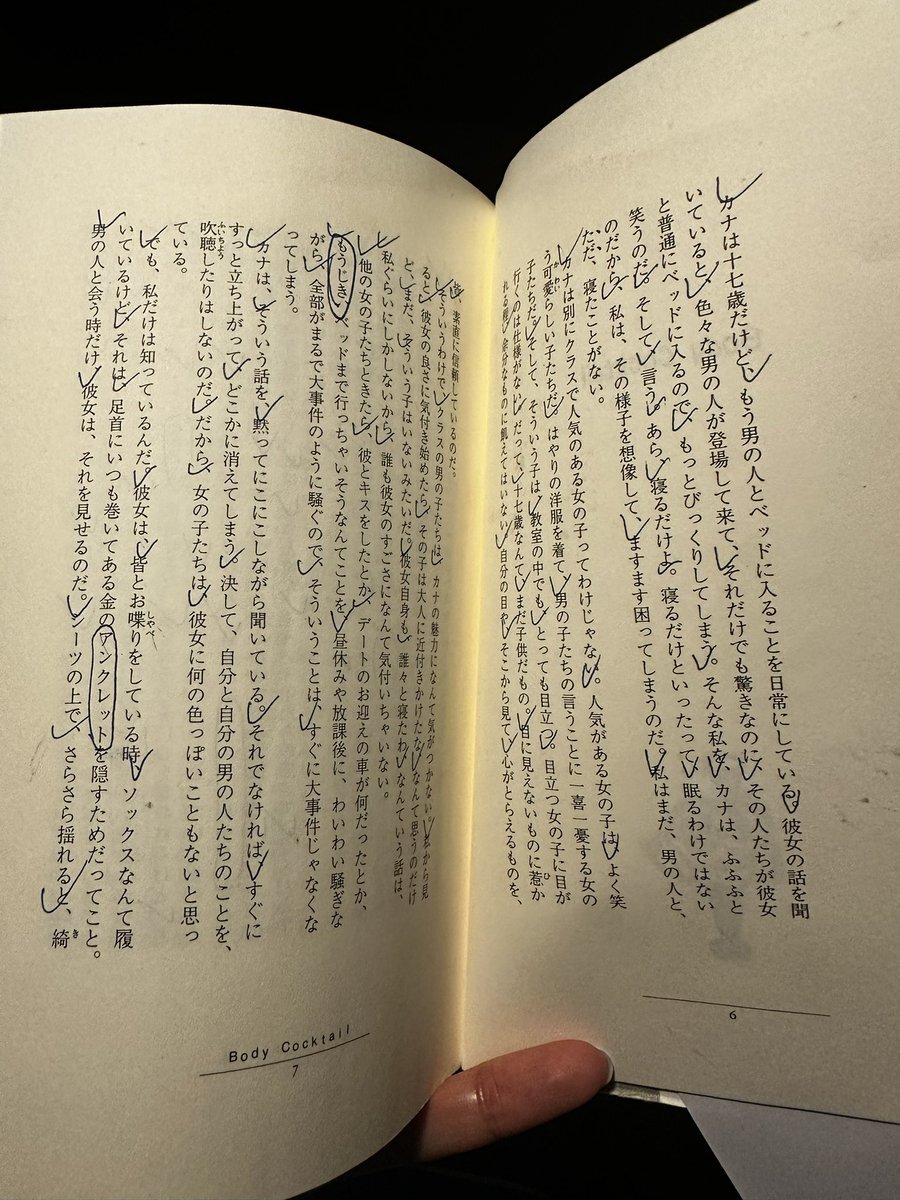 カナは十七歳だけど、もう男の人とベッドに入ることを日常にしている。彼女の話を聞
いていると、色々な男の人が登場して来て、それだけでも驚きなのに、その人たちが彼女
と普通にベッドに入るので、もっとびっくりしてしまう。そんな私を、カナは、ふふふと
笑うのだ。そして、言う。あら、寝るだけよ。寝るだけといったって、眠るわけではない
のだから、私は、その様子を想像して、ますます困ってしまうのだ。私はまだ、男の人と、
ただ、寝たことがない。
カナは別にクラスで人気のある女の子ってわけじゃない。人気がある女の子は、よく笑
う可愛らしい子たちだ。はやりの洋服を着て、男の子たちの言うことに一喜一憂する女の
子たちだ。そして、そういう子は、教室の中でも、とっても目立つ。目立つ女の子に目が
行くのは仕様がない。だって、十七歳なんて、まだ子供だもの。目に見えないものに惹か
れる程、余分なものに飢えてはいない。自分の目や、そこから見て、心がとらえるものを、
皆、素直に信頼しているのだ。
そういうわけで、クラスの男の子たちは、カナの魅力になんて気がつかない。私から見
ると、彼女の良さに気付き始めたら、その子は大人に近付きかけたな、なんて思うのだけ
ど、まだ、そういう子はいないみたいだ。彼女自身も、誰々と寝たわ、なんていう話は、
私ぐらいにしかしないから、誰も彼女のすごさになんて気付いちゃいない。
他の女の子たちときたら、彼とキスをしたとか、デートのお迎えの車が何だったとか、
もうじき、ベッドまで行っちゃいそうなんてことを、昼休みや放課後に、わいわい騒ぎな
がら、全部がまるで大事件のように騒ぐので、そういうことは、すぐに大事件じゃなくな
ってしまう。
カナは、そういう話を、黙ってにこにこしながら聞いている。それでなければ、すぐに
すっと立ち上がって、どこかに消えてしまう。決して、自分と自分の男の人たちのことを、
吹聴したりはしないのだ。だから、女の子たちは、彼女に何の色っぽいこともないと思っ
ている。
でも、私だけは知っているんだ。彼女は、皆とお喋りをしている時、ソックスなんて履
いているけど、それは、足首にいつも巻いてある金のアンクレットを隠すためだってこと。
男の人と会う時だけ、彼女は、それを見せるのだ。シーツの上で、さらさら揺れると、綺
6
Body Cocktail
7